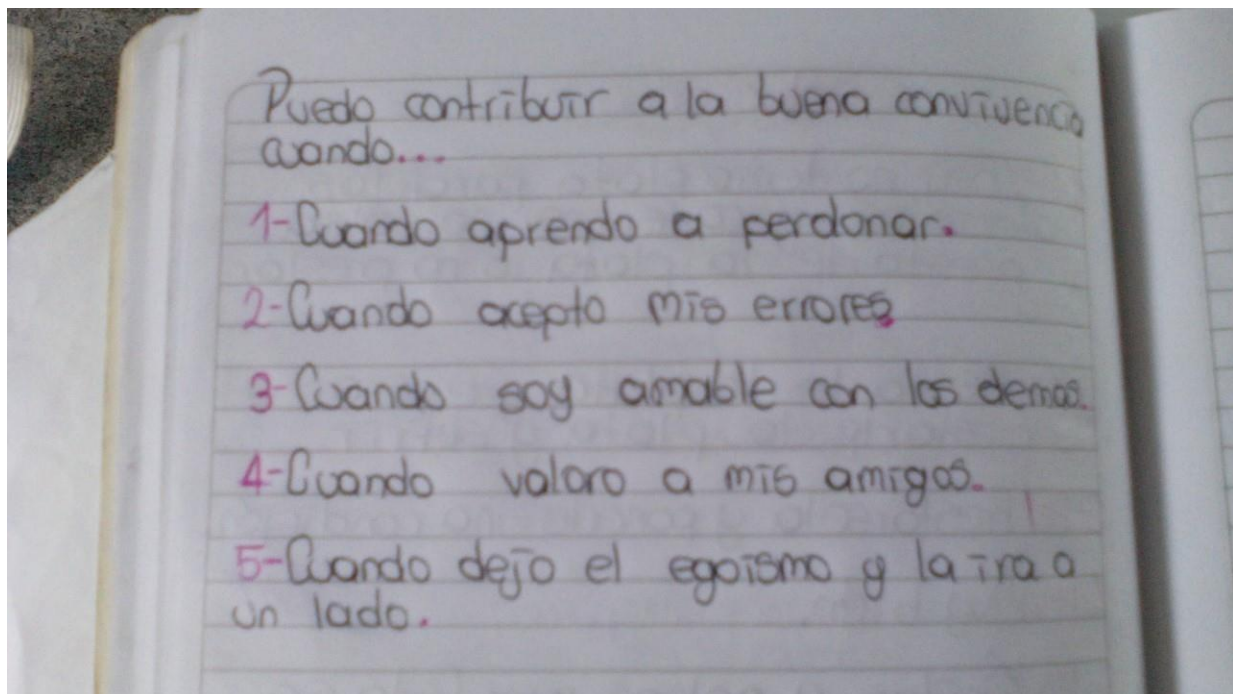 Puedo contribuir a la buena convivencia
cuando...
1-Cuando aprendo a perdonar.
2-Cuando acepto mis errores.
3-Cuando soy amable con los demas.
4-Cuando valoro a mis amigos.
5-Cuando dejo el egoismo y la ira a
un lado.